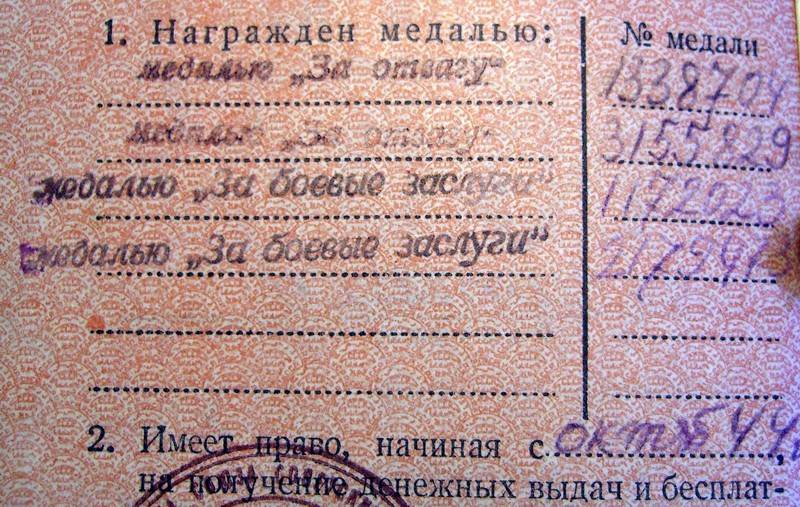 1. Награжден медалью: № медали
медалью „За отвагу“ 1338704
медалью „За отвагу“ 3155829
медалью „За боевые заслуги“ 1172223
медалью „За боевые заслуги“
2. Имеет право, начиная с октяб 44
на получение денежных выдач и бесплат-